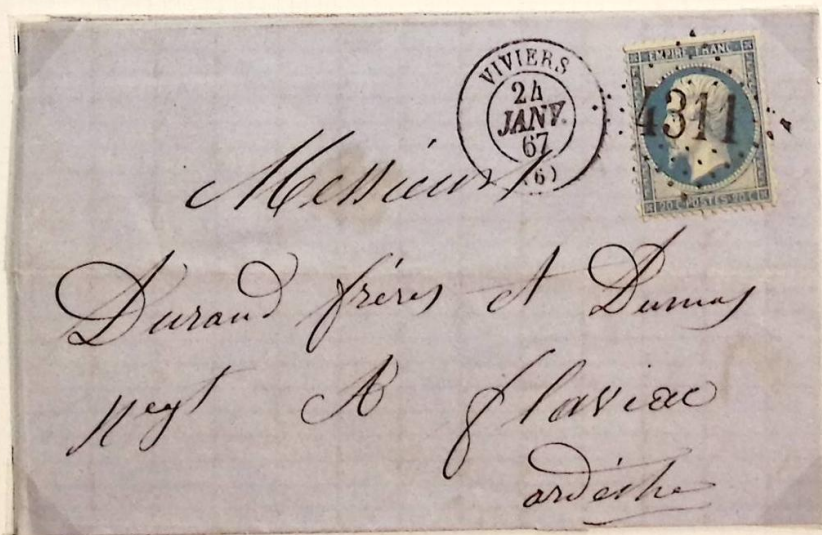 VIVIERS
24
JANV.
67
(6)
EMPIRE FRANC
4311
20 C POSTES 20 C
Messieurs
Durand frères et Dumas
Negt A flaviac
ardèche